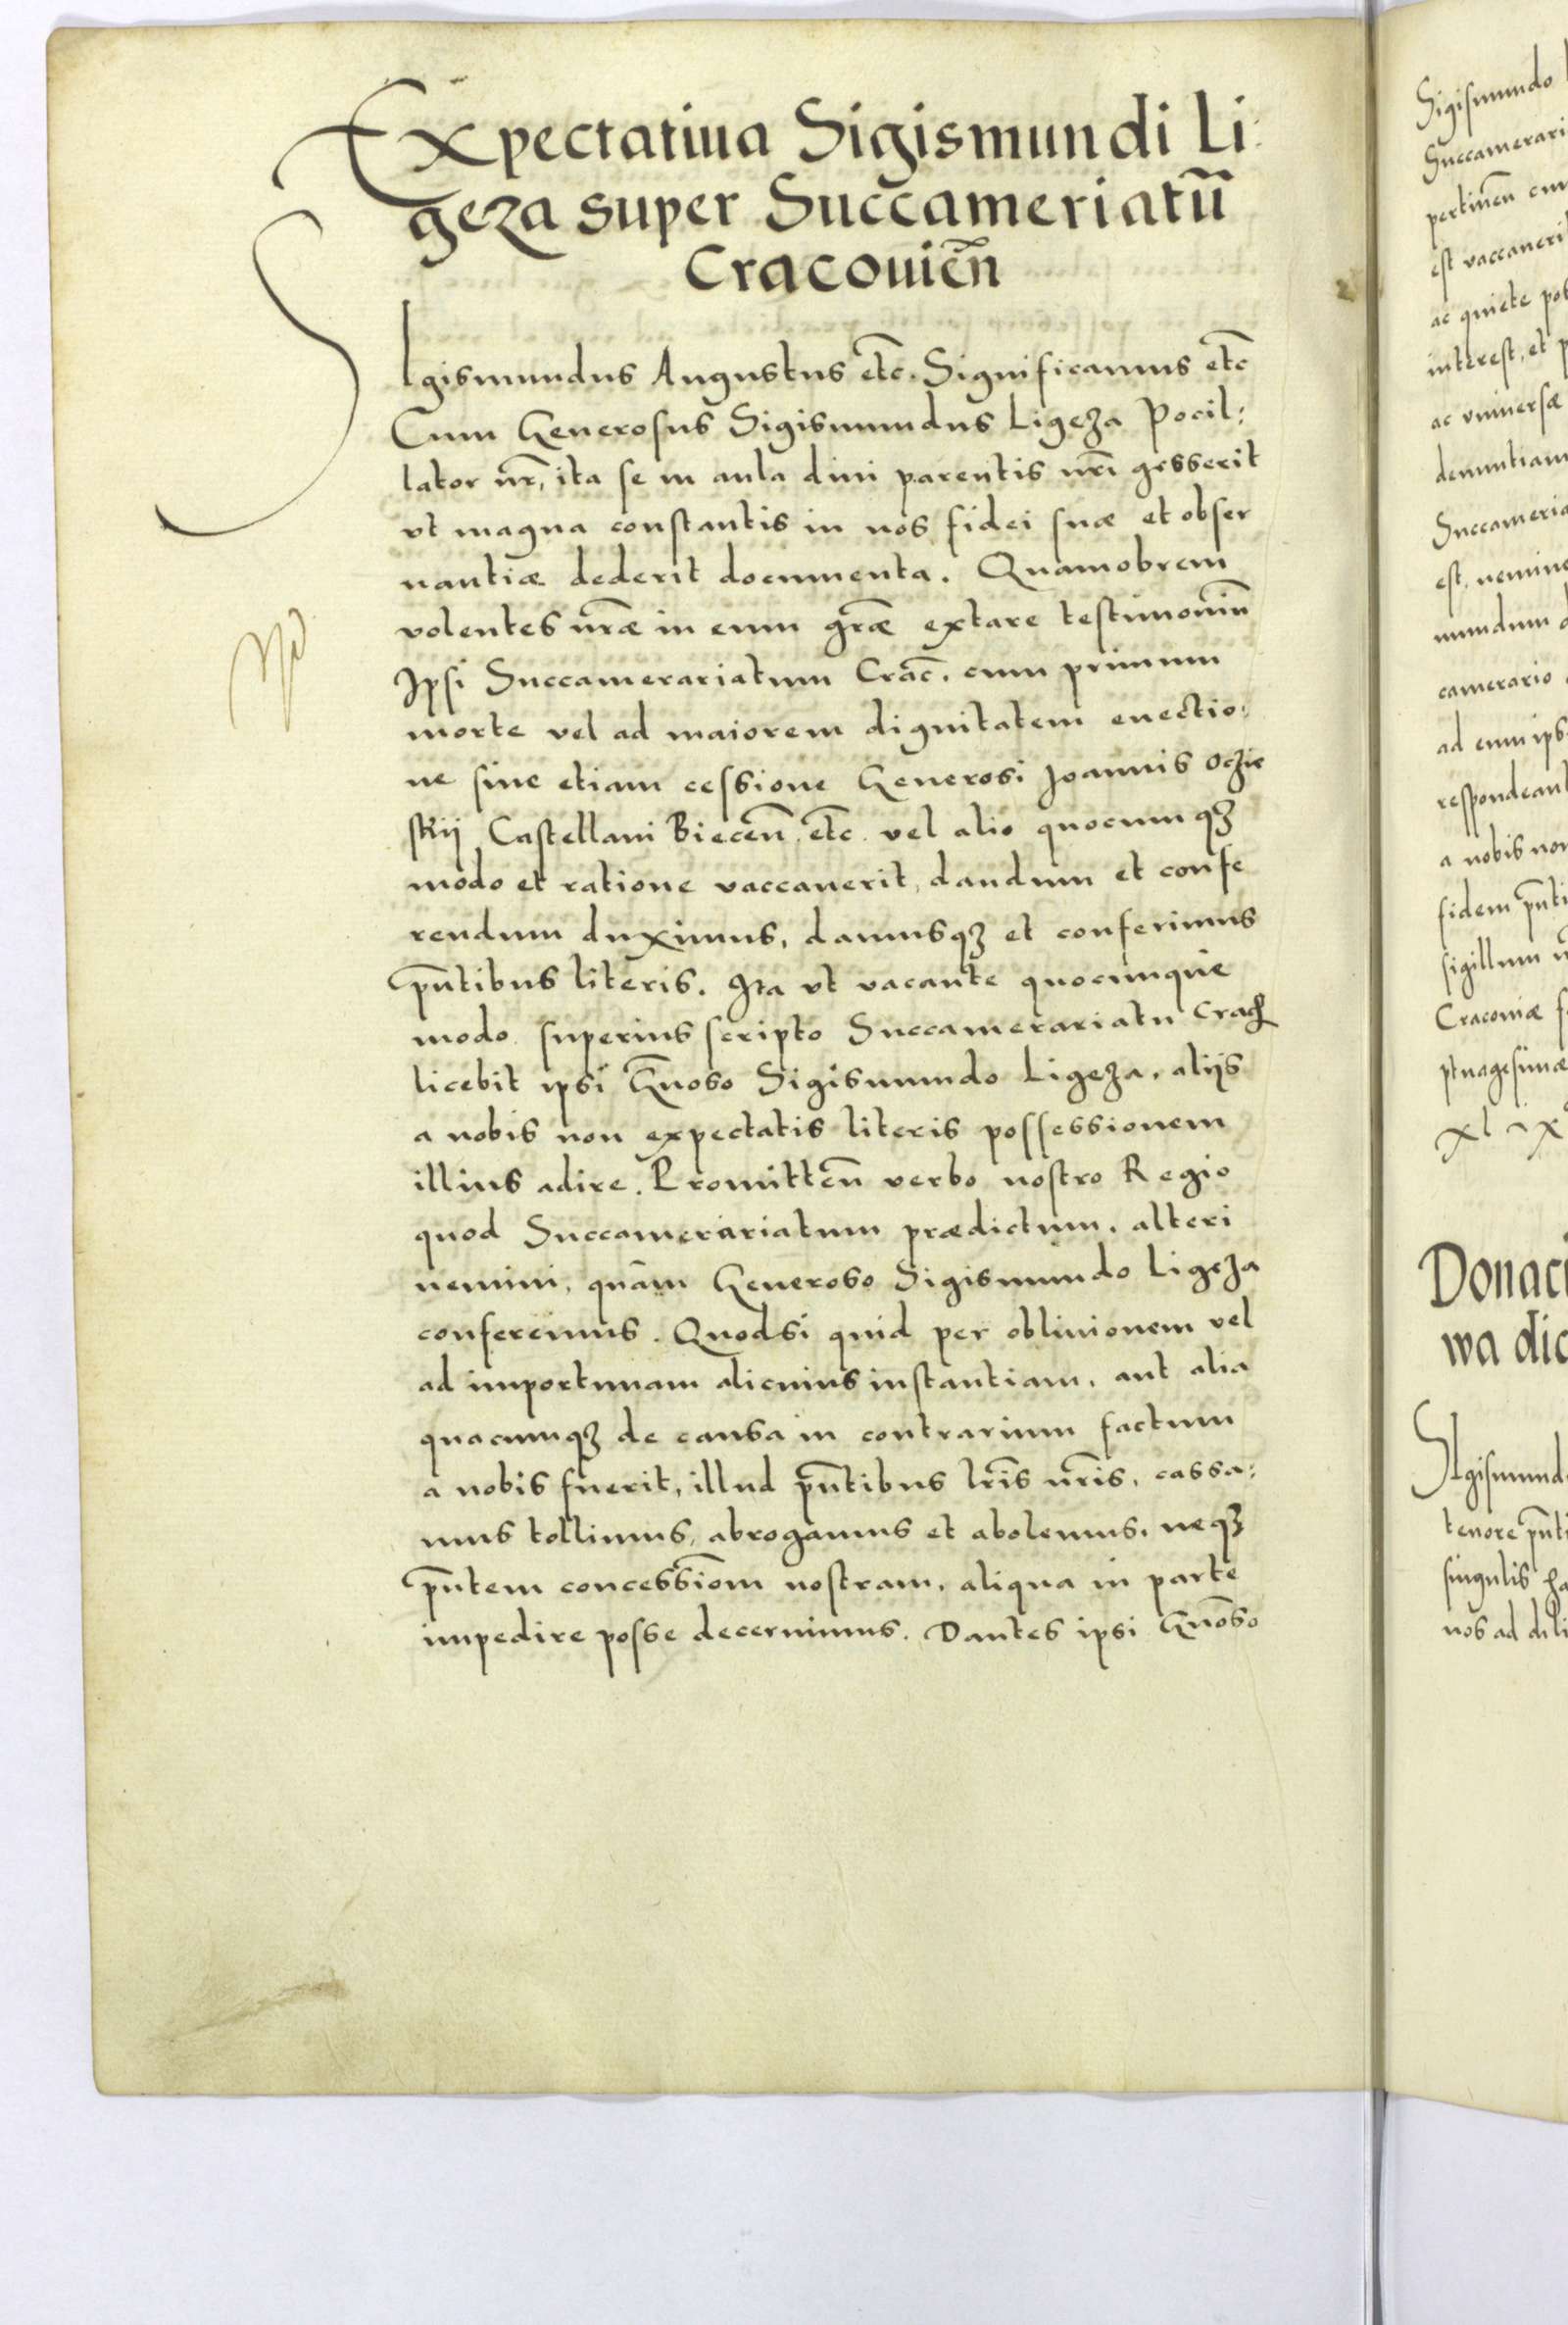 Expectatiua Sigismundi Li:
geza super Succameriatū
Cracouień
SIgismundus Augustus etc̄. Significamus etc̄
Cum Generosus Sigismundus Ligeza Pocil:
lator nr̄, ita se in aula diui parentis nr̄i gesserit
vt magna constantis in nos fidei suæ et obser
uantiæ dederit documenta. Quamobrem
volentes nr̄æ in eum gr̄æ extare testimoniū
Ipsi Succamerariatum Crac̄. cum primum
morte vel ad maiorem dignitatem euectio:
ne siue etiam cessione Generosi Joannis Oczie
skij Castellani Biecen̄. etc̄. vel alio quocumqꝫ
modo et ratione vaccauerit, dandum et confe
rendum duximus, damusqꝫ et conferimus
pn̄tibus literis. Ita vt vacante quocunque
modo superius scripto Succamerariatu Crac̄
licebit ipsi Gn̄oso Sigismundo Ligeza, aliis
a nobis non expectatis literis possessionem
illius adire. Promitten̄ verbo nostro Regio
quod Succamerariatum prædictum, alteri
nemini, quàm Generoso Sigismundo Ligeza
conferemus. Quodsi quid per obliuionem vel
ad importunam alicuius instantiam, aut alia
quacumqꝫ de causa in contrarium factum
a nobis fuerit, illud pn̄tibus lr̄is nr̄is, cassa:
mus tollimus, abrogamus et abolemus, neqꝫ
pn̄tem concessiōm nostram, aliqua in parte
impedire posse decernimus. Dantes ipsi Gn̄oso
Sigismundo
Succamerari
pertinen̄ cum
est vaccaueri
ac quiete pos
interest, et p
ac vniuersæ
denuntiam
Succameria
est, nemine
mundum
camerario
ad eum ips
respondeant
a nobis non
fidem pn̄ti
sigillum
Cracouiæ
ptuagesimæ
Donaci
wa dic
SIgismund
tenore pn̄t
singulis
nos ad di